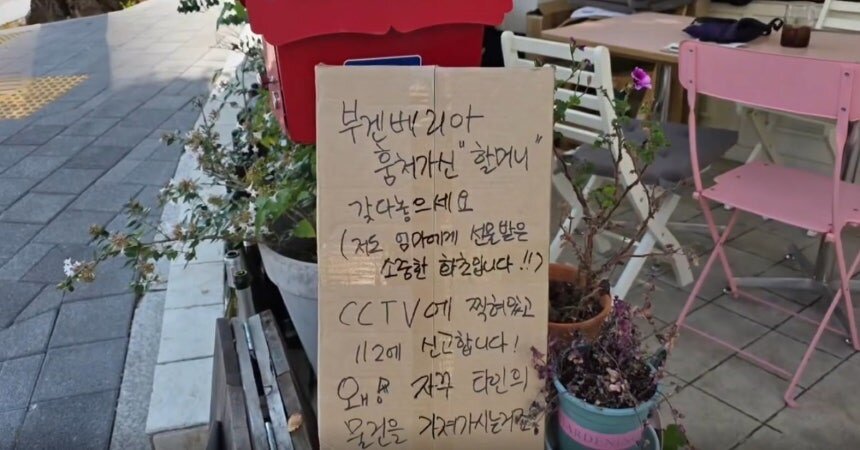 부겐베리아
훔쳐가신 "할머니"
갖다놓으세요
(저도 엄마에게 선물받은
소중한 화초입니다!!)
CCTV에 찍혀있고
112에 신고합니다!
왜 자꾸 타인의
물건을 가져가시는거죠?
GARDENING